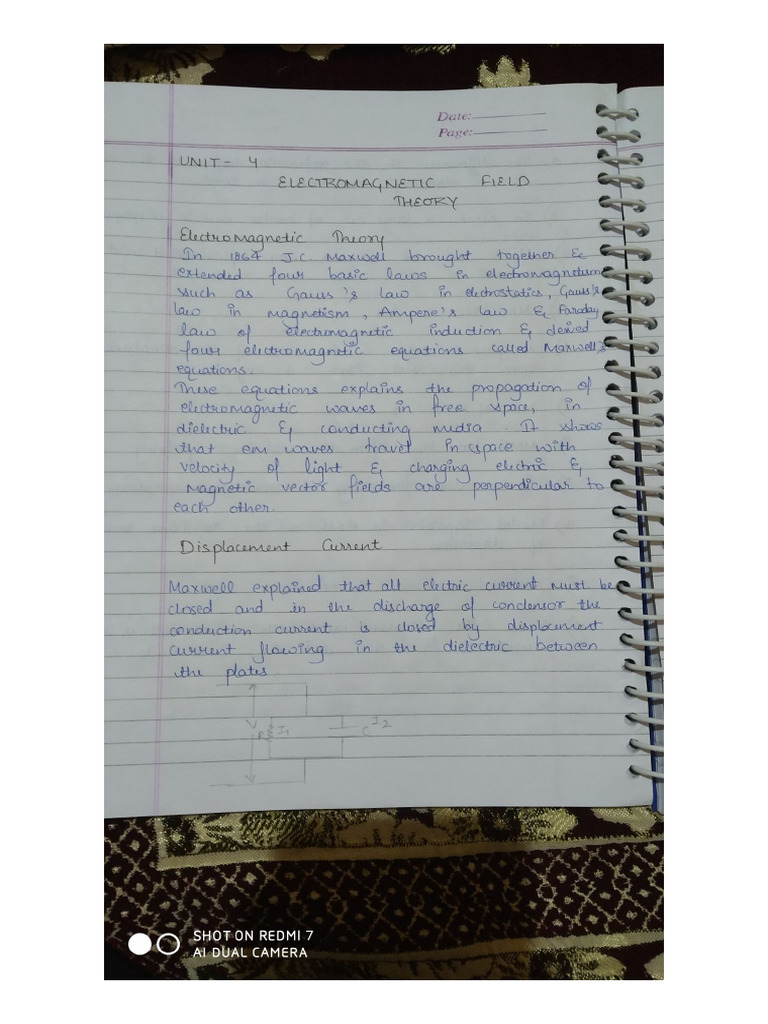 Date:
Page:
UNIT - 4
ELECTROMAGNETIC FIELD
THEORY
Electromagnetic Theory
In 1864 J.C. Maxwell brought together &
extended four basic laws in electromagnetism
such as Gauss's Law in electrostatics, Gauss's
law in magnetism, Ampere's law & Faraday
law of electromagnetic induction & derived
four electromagnetic equations called Maxwell's
equations.
These equations explains the propagation of
electromagnetic waves in free space, in
dielectric & conducting media. It shows
that em waves travel in space with
velocity of light & charging electric &
Magnetic vector fields are perpendicular to
each other.
Displacement Current
Maxwell explained that all electric current must be
closed and in the discharge of condensor the
conduction current is closed by displacement
current flowing in the dielectric between
the plates
V
R I1 C I2
SHOT ON REDMI 7
AI DUAL CAMERA